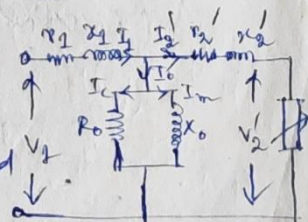 r1 x1 I1 I2' r2' x2'
I0
Ic Im
R0 X0
V1 V2'